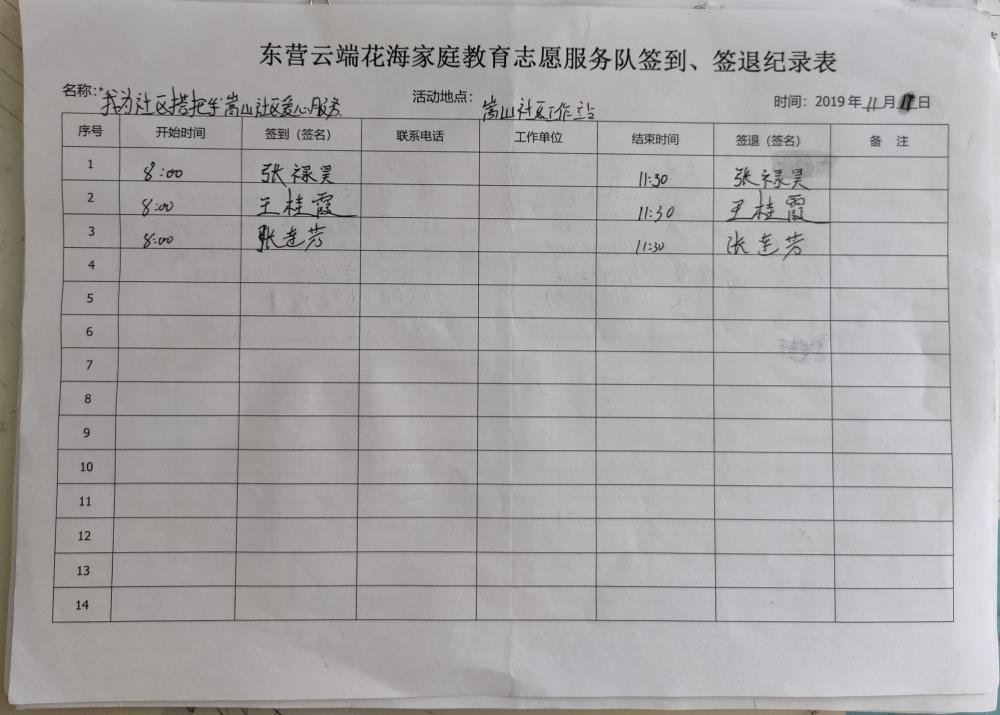 东营云端花海家庭教育志愿服务队签到、签退纪录表
名称："我为社区搭把手"嵩山社区爱心服务 活动地点：嵩山社区工作站 时间：2019年11月日
序号 开始时间 签到（签名） 联系电话 工作单位 结束时间 签退（签名） 备 注
1 8:00 张禄昊 11:30 张禄昊
2 8:00 王桂霞 11:30 王桂霞
3 8:00 张莲芳 11:30 张莲芳
4
5
6
7
8
9
10
11
12
13
14